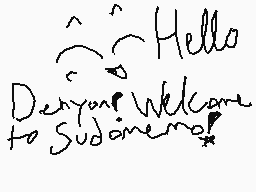 Hello
Denyon! Welcome
to Sudomemo!